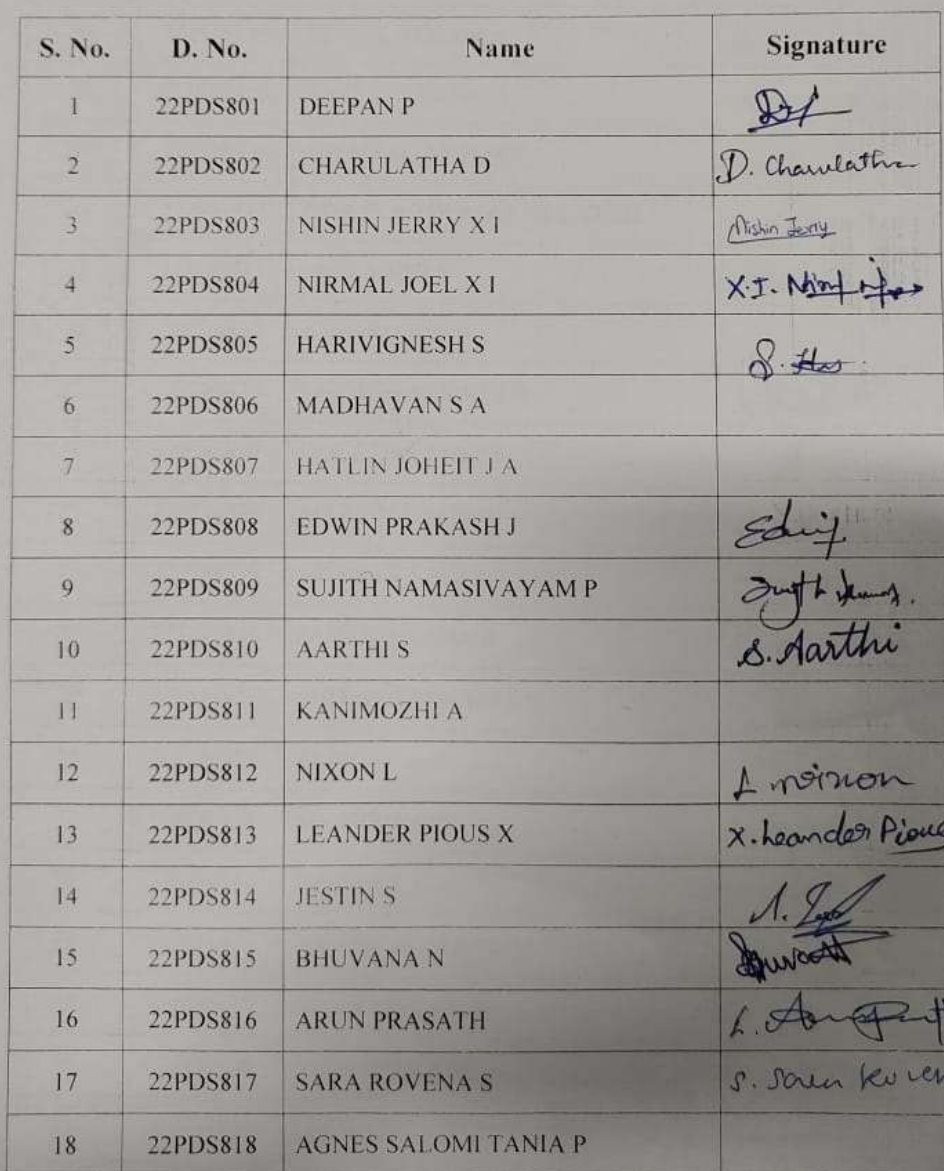 S. No. D. No. Name Signature
1 22PDS801 DEEPAN P
2 22PDS802 CHARULATHA D D. Charulatha
3 22PDS803 NISHIN JERRY X I Nishin Jerry
4 22PDS804 NIRMAL JOEL X I X.I.
5 22PDS805 HARIVIGNESH S S.
6 22PDS806 MADHAVAN S A
7 22PDS807 HATLIN JOHEIT J A
8 22PDS808 EDWIN PRAKASH J
9 22PDS809 SUJITH NAMASIVAYAM P
10 22PDS810 AARTHI S S. Aarthi
11 22PDS811 KANIMOZHI A
12 22PDS812 NIXON L L nixon
13 22PDS813 LEANDER PIOUS X X. Leander Pious
14 22PDS814 JESTIN S
15 22PDS815 BHUVANA N
16 22PDS816 ARUN PRASATH L.
17 22PDS817 SARA ROVENA S S. Sara
18 22PDS818 AGNES SALOMI TANIA P